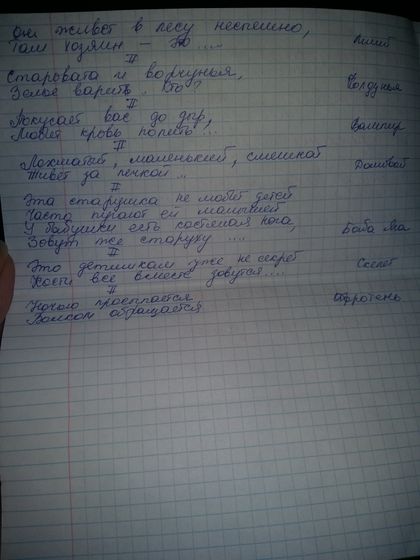 Он живёт в лесу неспешно,
Там хозяин — ..... Леший
II
Старовата и ворчунья,
Зелье варит. Кто? Колдунья
II
Покусает вас до дыр,
Любит кровь попить... Вампир
II
Лохматый, маленький, смешной
Живёт за печкой .. Домовой
II
Эта старушка не любит детей
Часто пугают ей малышей
У бабушки есть костяная нога,
Зовут же старуху .... Баба Яга
II
Это детишкам уже не секрет
Кости все вместе зовутся.... Скелет
II
Ночью просыпается
Волком обращается Оборотень